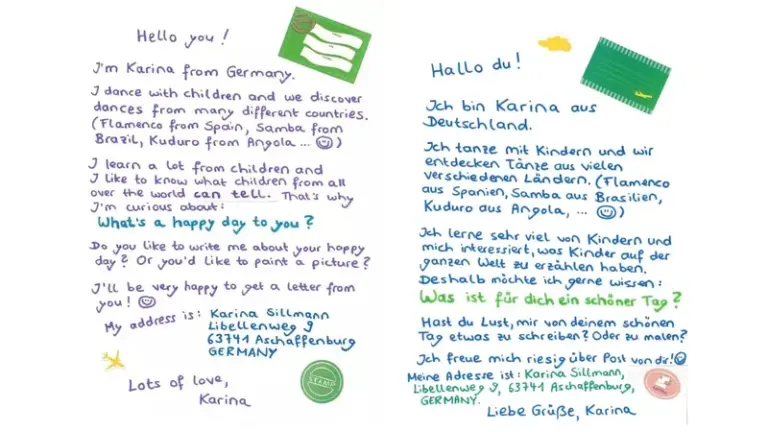 Hello you!
I'm Karina from Germany.
I dance with children and we discover
dances from many different countries.
(Flamenco from Spain, Samba from
Brazil, Kuduro from Angola ... ☺)
I learn a lot from children and
I like to know what children from all
over the world can tell. That's why
I'm curious about:
What's a happy day to you?
Do you like to write me about your happy
day? Or you'd like to paint a picture?
I'll be very happy to get a letter from
you! ☺
My address is: Karina Sillmann
Libellenweg 9
63741 Aschaffenburg
GERMANY
STAMP
Lots of love,
Karina
Hallo du!
Ich bin Karina aus
Deutschland.
Ich tanze mit Kindern und wir
entdecken Tänze aus vielen
verschiedenen Ländern. (Flamenco
aus Spanien, Samba aus Brasilien,
Kuduro aus Angola, ... ☺)
Ich lerne sehr viel von Kindern und
mich interessiert, was Kinder auf der
ganzen Welt zu erzählen haben.
Deshalb möchte ich gerne wissen:
Was ist für dich ein schöner Tag?
Hast du Lust, mir von deinem schönen
Tag etwas zu schreiben? Oder zu malen?
Ich freue mich riesig über Post von dir! ☺
Meine Adresse ist: Karina Sillmann,
Libellenweg 9, 63741 Aschaffenburg,
GERMANY.
Liebe Grüße, Karina